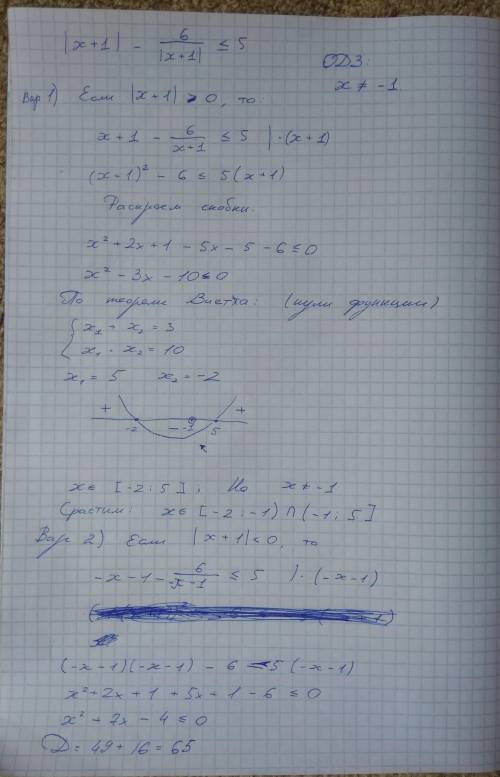 |x+1| - 6/|x+1| ≤ 5
ОДЗ:
x ≠ -1
Вар 1) Если |x+1| > 0, то
x+1 - 6/(x+1) ≤ 5 | ·(x+1)
(x-1)² - 6 ≤ 5(x+1)
Раскроем скобки.
x² + 2x + 1 - 5x - 5 - 6 ≤ 0
x² - 3x - 10 ≤ 0
По теореме Виетта: (нули функции)
{ x₁ + x₂ = 3
x₁ · x₂ = 10
x₁ = 5 x₂ = -2
+ -2 - -1 5 +
x ∈ [-2; 5]; Но x ≠ -1
Срастим: x ∈ [-2; -1) ∩ (-1; 5]
Вар 2) Если |x+1| < 0, то
-x-1 - 6/(-x-1) ≤ 5 | ·(-x-1)
(-x-1)(-x-1) - 6 ≤ 5(-x-1)
x² + 2x + 1 + 5x + 1 - 6 ≤ 0
x² + 7x - 4 ≤ 0
D = 49 + 16 = 65